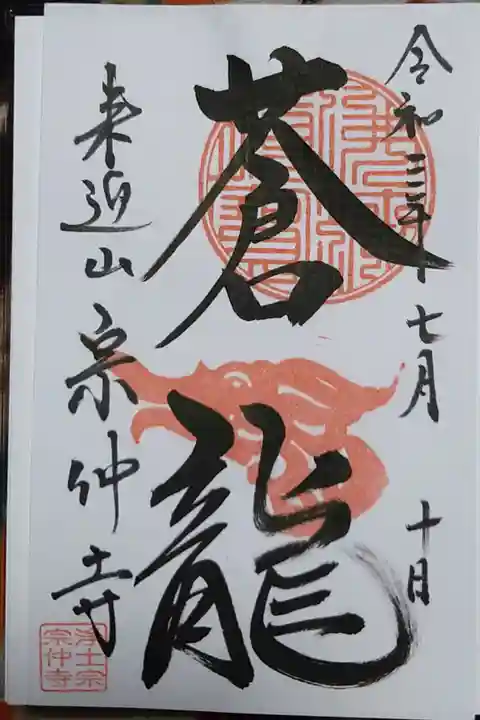 令和三年七月
十日
蒼龍
来近山宗仲寺
浄土宗
宗仲寺